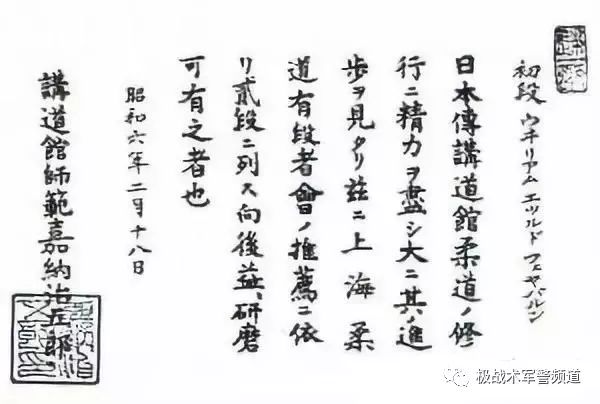 初段 ウヰリアム エワルド フェヤバルン
日本傳講道館柔道ノ修
行ニ精力ヲ盡シ大ニ其ノ進
歩ヲ見タリ茲ニ上海柔
道有段者會ノ推薦ニ依
リ貳段ニ列ス向後益〻研磨
可有之者也
昭和六年二月十八日
講道館師範嘉納治五郎
极战术军警频道